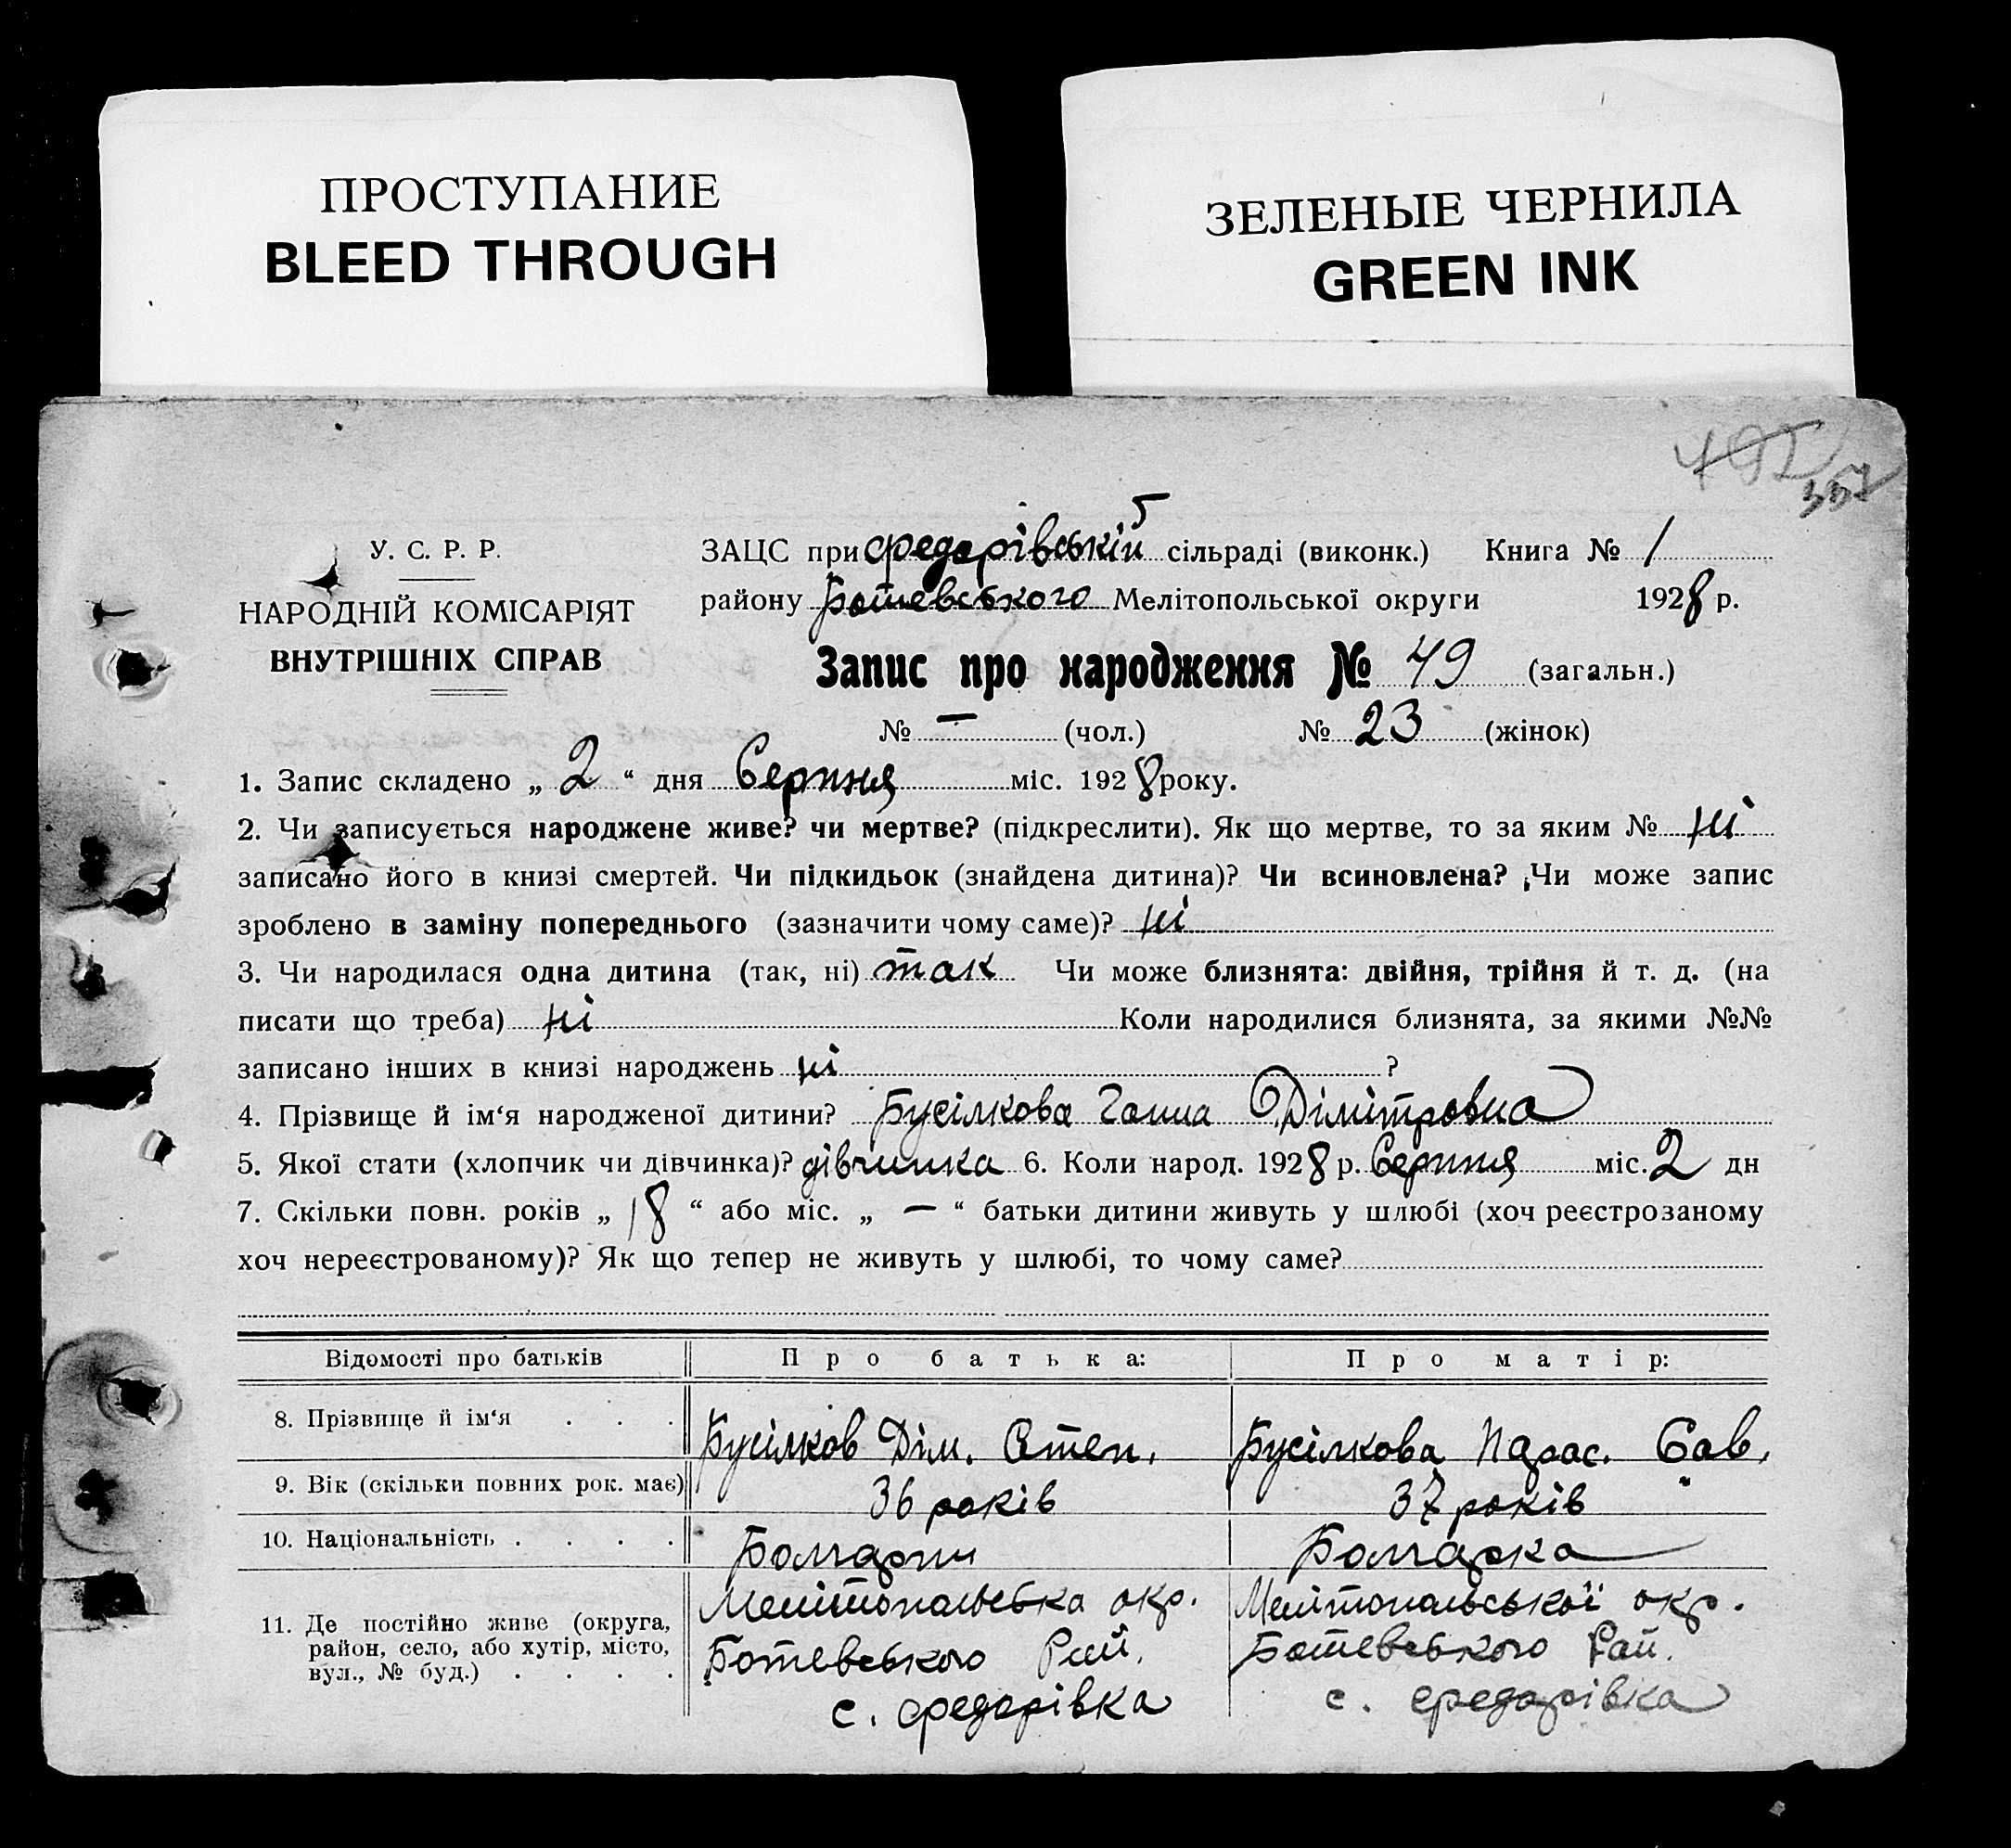 ПРОСТУПАНИЕ
BLEED THROUGH
ЗЕЛЕНЫЕ ЧЕРНИЛА
GREEN INK
357
У. С. Р. Р.
НАРОДНІЙ КОМІСАРІЯТ
ВНУТРІШНІХ СПРАВ
ЗАЦС при Федорівській сільраді (виконк.) Книга № 1
району Ботевського Мелітопольської округи 1928 р.
Запис про народження № 49 (загальн.)
№ — (чол.) № 23 (жінок)
1. Запис складено „ 2 “ дня Серпня міс. 1928 року.
2. Чи записується народжене живе? чи мертве? (підкреслити). Як що мертве, то за яким № ні
записано його в книзі смертей. Чи підкидьок (знайдена дитина)? Чи всиновлена? Чи може запис
зроблено в заміну попереднього (зазначити чому саме)? ні
3. Чи народилася одна дитина (так, ні) так Чи може близнята: двійня, трійня й т. д. (на
писати що треба) ні Коли народилися близнята, за якими №№
записано інших в книзі народжень ні ?
4. Прізвище й ім‘я народженої дитини? Бусілкова Ганна Дімітровна
5. Якої стати (хлопчик чи дівчинка)? дівчинка 6. Коли народ. 1928 р. Серпня міс. 2 дн
7. Скільки повн. років „ 18 “ або міс. „ — “ батьки дитини живуть у шлюбі (хоч реєстрозаному
хоч нереєстрованому)? Як що тепер не живуть у шлюбі, то чому саме?
Відомості про батьків Про батька: Про матір:
8. Прізвище й ім‘я . . . Бусілков Дім. Степ. Бусілкова Парас. Сав.
9. Вік (скільки повних рок. має) 36 років 37 років
10. Національність . . . . Болгарин Болгарка
11. Де постійно живе (округа, район, село, або хутір, місто, вул., № буд.) . . . .
Мелітопольська окр. Мелітопольської окр.
Ботевського Рай. Ботевського Рай.
с. Федорівка с. Федорівка